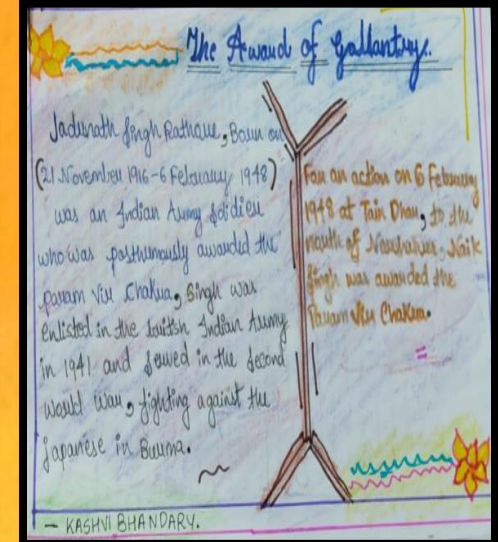 The Award of Gallantry.
Jadunath Singh Rathore, Born on
(21 November 1916-6 February 1948)
was an Indian Army soldier
who was posthumously awarded the
param Vir Chakra, Singh was
enlisted in the british Indian Army
in 1941 and served in the second
World War, fighting against the
japanese in Burma.
For an action on 6 February
1948 at Tain Dhar, to the
north of Naushahra, Naik
Singh was awarded the
Param Vir Chakra.
- KASHVI BHANDARY.